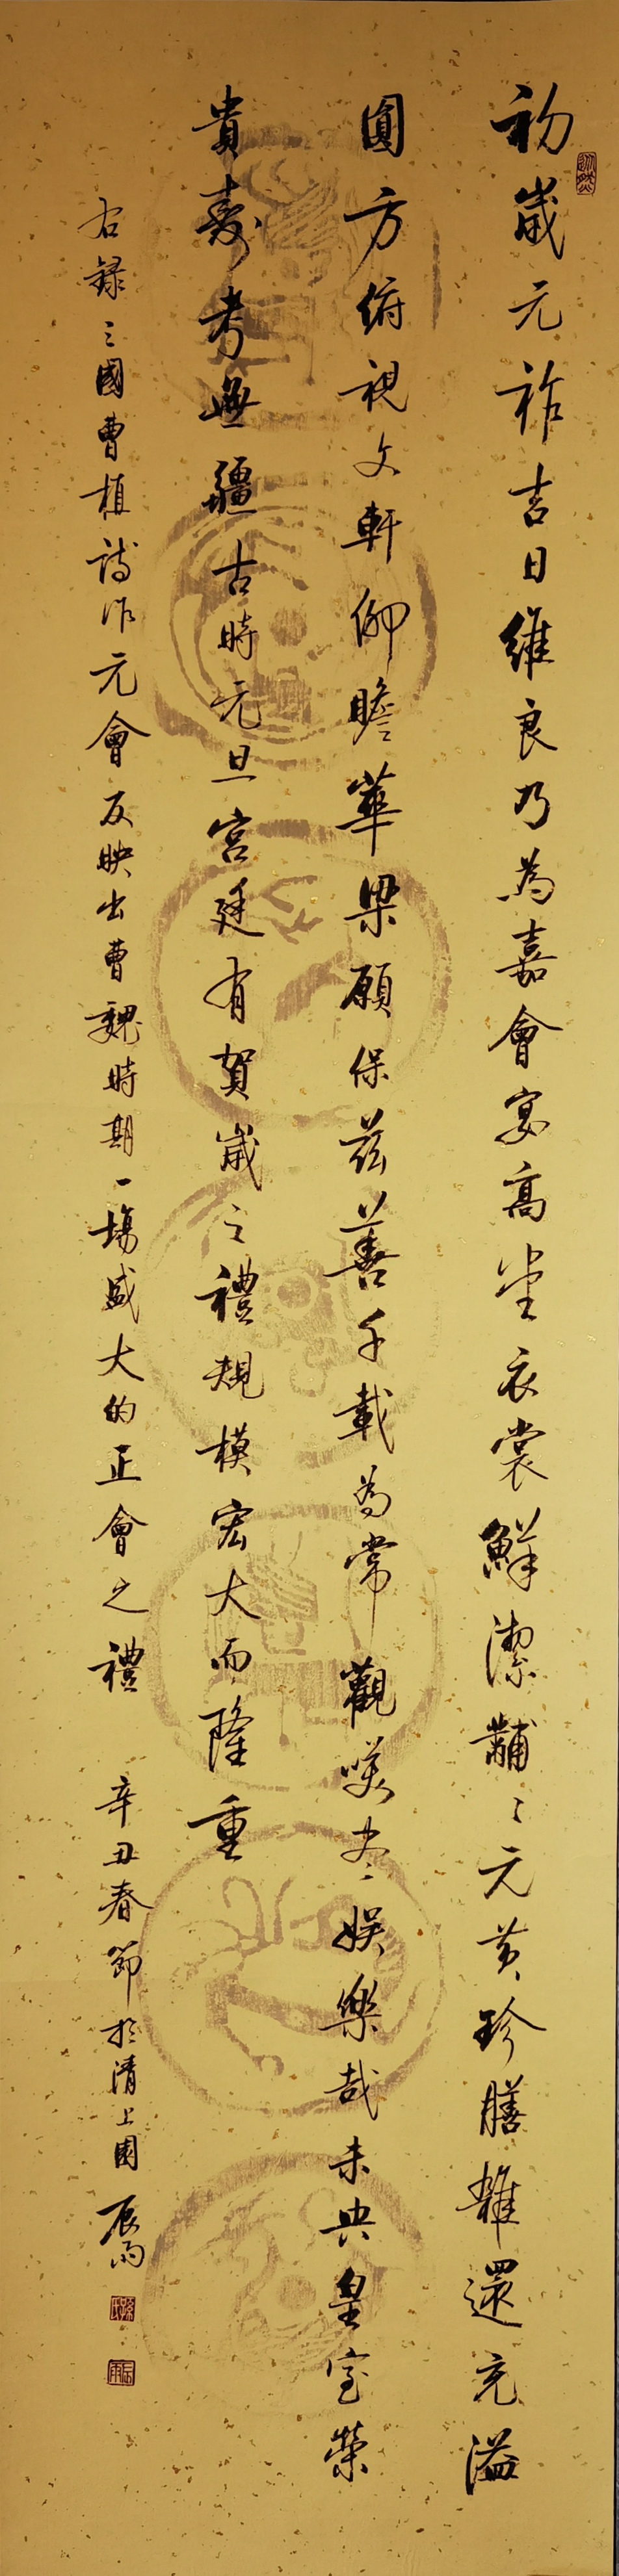 初歲元祚吉日維良乃為嘉會宴高堂衣裳鮮潔黼〻元黃珍膳雜還充溢
圓方俯視文軒仰瞻華梁願保茲善千載為常觀笑盡娛樂哉未央皇室榮
貴壽考無疆古時元旦宮廷有賀歲之禮規模宏大而隆重
右録三國曹植詩作元會反映出曹魏時期一場盛大的正會之禮 辛丑春節於清上園 辰雨